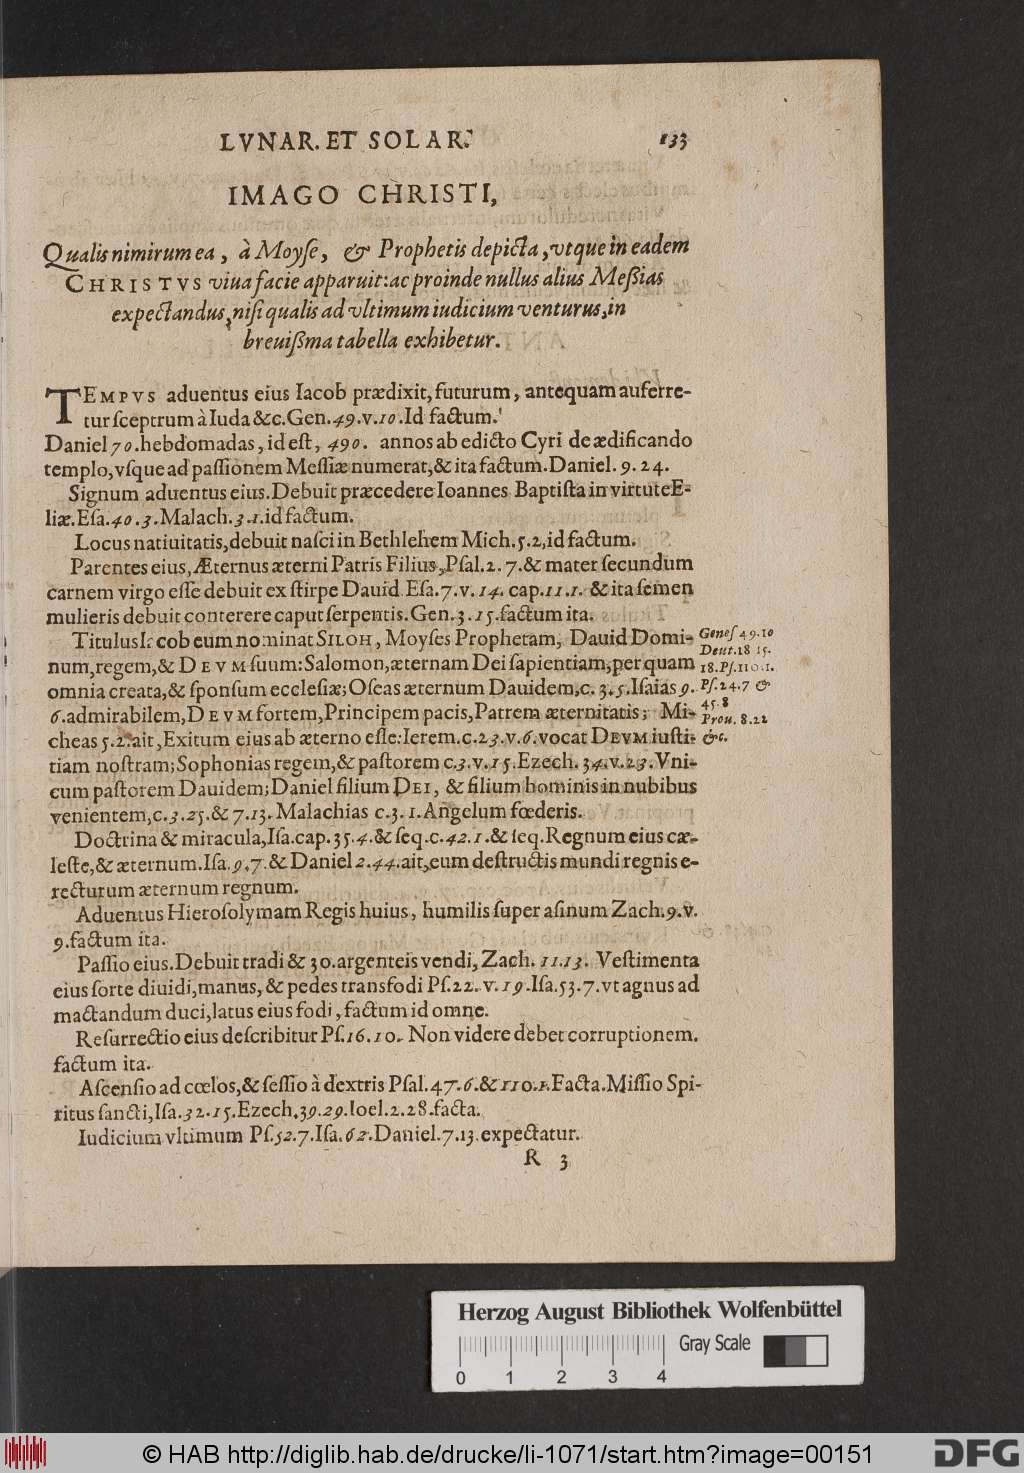 LVNAR. ET SOLAR. 133
IMAGO CHRISTI,
Qualis nimirum ea, à Moyſe, & Prophetis depicta, vtque in eadem
CHRISTVS viua facie apparuit: ac proinde nullus alius Meßias
expectandus, niſi qualis ad vltimum iudicium venturus, in
breuißma tabella exhibetur.
TEMPVS aduentus eius Iacob prædixit, futurum, antequam auferre-
tur ſceptrum à Iuda &c. Gen. 49. v. 10. Id factum.
Daniel 70. hebdomadas, id eſt, 490. annos ab edicto Cyri de ædificando
templo, vſque ad paſſionem Meſſiæ numerat, & ita factum. Daniel. 9. 24.
Signum aduentus eius. Debuit præcedere Ioannes Baptiſta in virtute E-
liæ. Eſa. 40. 3. Malach. 3. 1. id factum.
Locus natiuitatis, debuit naſci in Bethlehem Mich. 5. 2, id factum.
Parentes eius, Æternus æterni Patris Filius, Pſal. 2. 7. & mater ſecundum
carnem virgo eſſe debuit ex ſtirpe Dauid Eſa. 7. v. 14. cap. 11. 1. & ita ſemen
mulieris debuit conterere caput ſerpentis. Gen. 3. 15. factum ita.
Titulus Iacob eum nominat SILOH, Moyſes Prophetam, Dauid Domi-
num, regem, & DEVM ſuum: Salomon, æternam Dei ſapientiam, per quam
omnia creata, & ſponſum eccleſiæ; Oſeas æternum Dauidem, c. 3. 5. Iſaias 9.
6. admirabilem, DEVM fortem, Principem pacis, Patrem æternitatis; Mi-
cheas 5. 2. ait, Exitum eius ab æterno eſſe: Ierem. c. 23. v. 6. vocat DEVM iuſti-
tiam noſtram; Sophonias regem, & paſtorem c. 3. v. 15. Ezech. 34. v. 23. Vni-
cum paſtorem Dauidem; Daniel filium DEI, & filium hominis in nubibus
venientem, c. 3. 25. & 7. 13. Malachias c. 3. 1. Angelum fœderis.
Geneſ 49. 10
Deut. 18 15.
18. Pſ. 110. 1.
Pſ. 24. 7 &
45 8
Prou. 8. 22
&c.
Doctrina & miracula, Iſa. cap. 35. 4. & ſeq. c. 42. 1. & ſeq. Regnum eius cæ-
leſte, & æternum. Iſa. 9. 7. & Daniel 2. 44. ait, eum deſtructis mundi regnis e-
recturum æternum regnum.
Aduentus Hieroſolymam Regis huius, humilis ſuper aſinum Zach. 9. v.
9. factum ita.
Paſſio eius. Debuit tradi & 30. argenteis vendi, Zach. 11. 13. Veſtimenta
eius ſorte diuidi, manus, & pedes transfodi Pſ. 22. v. 19. Iſa. 53. 7. vt agnus ad
mactandum duci, latus eius fodi, factum id omne.
Reſurrectio eius deſcribitur Pſ. 16. 10. Non videre debet corruptionem.
factum ita.
Aſcenſio ad cœlos, & ſeſſio à dextris Pſal. 47. 6. & 110. 1. Facta. Miſſio Spi-
ritus ſancti, Iſa. 32. 15. Ezech. 39. 29. Ioel. 2. 28. facta.
Iudicium vltimum Pſ. 52. 7. Iſa. 62. Daniel. 7. 13. expectatur.
R 3
Herzog August Bibliothek Wolfenbüttel
Gray Scale
0 1 2 3 4
© HAB http://diglib.hab.de/drucke/li-1071/start.htm?image=00151
DFG